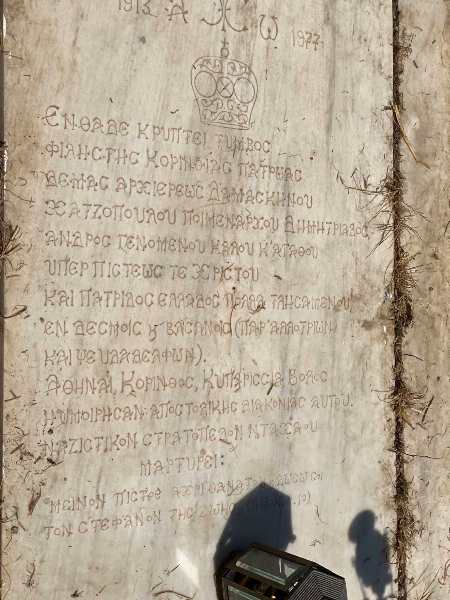 1913 Α Ω 1977
ΕΝΘΑΔΕ ΚΡΥΠΤΕΙ ΤΥΜΒΟΣ
ΦΙΛΗΣΤΗΣ ΚΟΡΙΝΘΙΑΣ ΠΑΤΡΗΑΣ
ΔΕΜΑΣ ΑΡΧΙΕΡΕΩΣ ΔΑΜΑΣΚΗΝΟΥ
ΧΑΤΖΟΠΟΥΛΟΥ ΠΟΙΜΕΝΑΡΧΟΥ ΔΗΜΗΤΡΙΑΔΟΣ
ΑΝΔΡΟΣ ΓΕΝΟΜΕΝΟΥ ΚΑΛΟΥ Κ'ΑΓΑΘΟΥ
ΥΠΕΡ ΠΙΣΤΕΩΣ ΤΕ ΧΡΙΣΤΟΥ
ΚΑΙ ΠΑΤΡΙΔΟΣ ΕΛΛΑΔΟΣ ΠΟΛΛΑ ΤΛΗΣΑΜΕΝΟΥ
ΕΝ ΔΕΣΜΟΙΣ ϗ ΒΑΣΑΝΟΙΣ (ΠΑΡ' ΑΛΛΟΤΡΙΩΝ
ΚΑΙ ΨΕΥΔΑΔΕΛΦΩΝ).
ΑΘΗΝΑΙ, ΚΟΡΙΝΘΟΣ, ΚΥΠΑΡΙΣΣΙΑ ΒΟΛΟΣ
ΗΥΜΟΙΡΗΣΑΝ ΑΠΟΣΤΟΛΙΚΗΣ ΔΙΑΚΟΝΙΑΣ ΑΥΤΟΥ.
ΝΑΖΙΣΤΙΚΟΝ ΣΤΡΑΤΟΠΕΔΟΝ ΝΤΑΧΑΟΥ
ΜΑΡΤΥΡΕΙ:
ΜΕΙΝΟΝ ΠΙΣΤΟΣ ΑΧΡΙ ΘΑΝΑΤΟΥ
ΤΟΝ ΣΤΕΦΑΝΟΝ ΤΗΣ ΖΩΗΣ